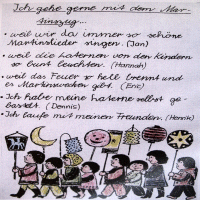 Ich gehe gerne mit dem Mar-
tinszug...
• weil wir da immer so schöne
Martinslieder singen. (Jan)
• weil die Laternen von den Kindern
so bunt leuchten. (Hannah)
• weil das Feuer so hell brennt und
es Martinswecken gibt. (Eric)
• Ich habe meine Laterne selbst ge-
bastelt. (Dennis)
• Ich laufe mit meinen Freunden. (Henrik)